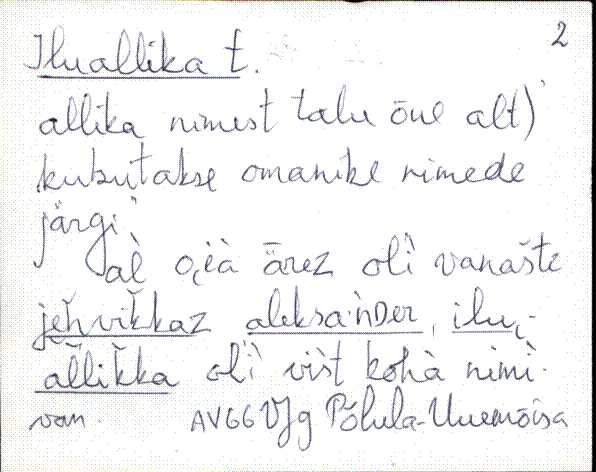 2
Iluallika t.
allika nimest talu õue alt)
kutsutakse omanike nimede
järgi.
al̀ o̭i̭à ārez oli vanašte
jeȟvikkaz aleksa·ǹDer, ilu,-
allikka oli vist kohà nimi.
van. AV66 VJg Põlula-Uuemõisa